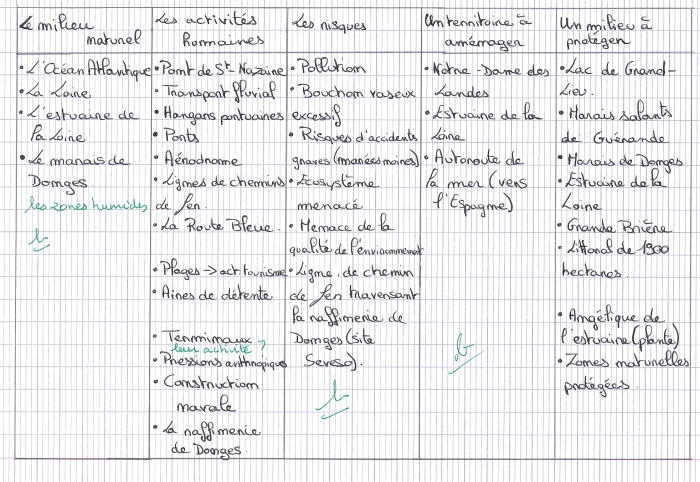 Le milieu
naturel
• L'Océan Atlantique
• La Loire
• L'estuaire de
la Loire
• Le marais de
Donges
les zones humides
Les activités
Romaines
• Pont de St-Nazaire
• Transport fluvial
• Hangars portuaires
• Ponts
• Aérodrome
• Lignes de chemins
de fer.
• La Route Bleue.
• Plages → act tourisme
• Aires de détente
• Terminaux ?
leur activité
• Pressions anthropiques
• Construction
navale
• La raffinerie
de Donges.
Les risques
• Pollution
• Bouchon vaseux
excessif
• Risques d'accidents
graves (marées noires)
• Ecosystème
menacé
• Menace de la
qualité de l'environnement
• Ligne de chemin
de fer traversant
la raffinerie de
Donges (site
Seveso).
Un territoire à
aménager
• Notre-Dame des
Landes
• Estuaire de la
Loire
• Autoroute de
la mer (vers
l'Espagne)
Un milieu à
protéger
• Lac de Grand-
Lieu.
• Marais salants
de Guérande
• Marais de Donges
• Estuaire de la
Loire
• Grande Brière
• Littoral de 1900
hectares.
• Angélique de
l'estuaire (plante)
• Zones naturelles
protégées.